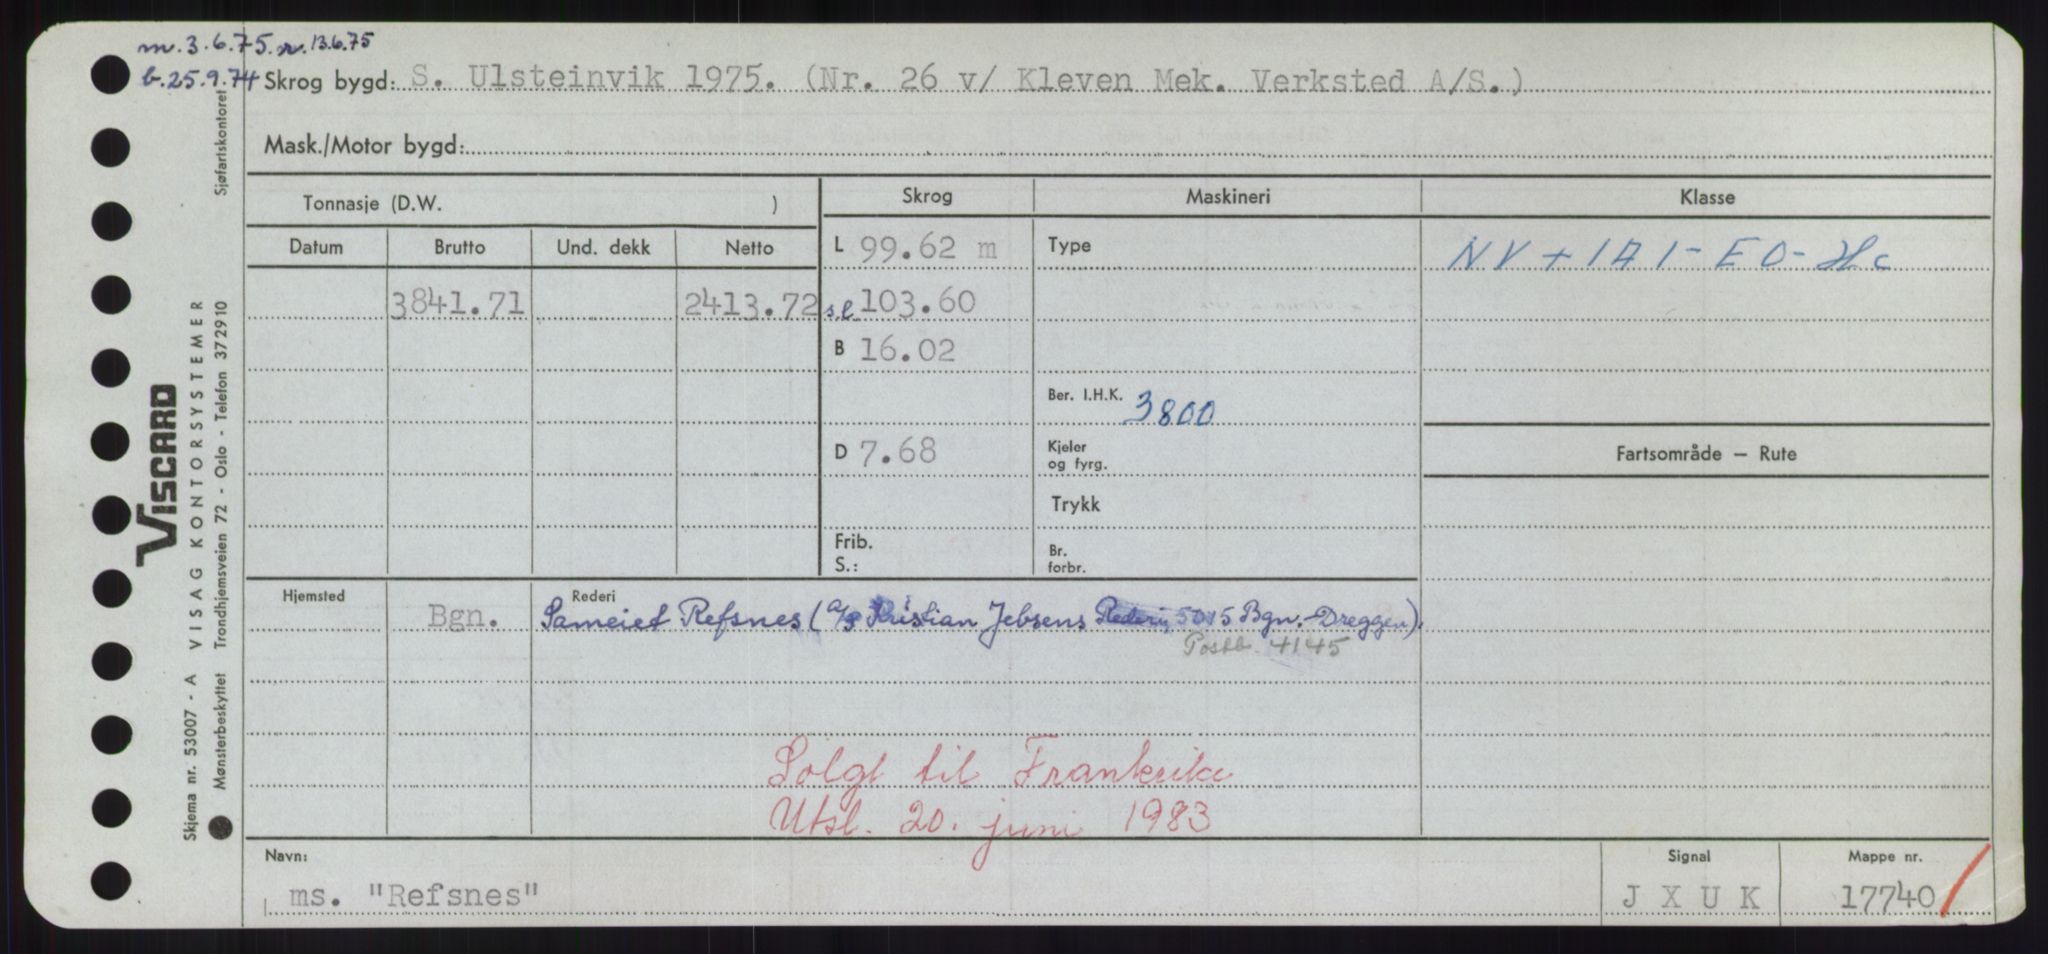 m. 3.6.75. r. 13.6.75
b. 25.9.74 Skrog bygd: S. Ulsteinvik 1975. (Nr. 26 v/ Kleven Mek. Verksted A/S.)
Mask./Motor bygd:
Tonnasje (D.W. ) Skrog Maskineri Klasse
Datum Brutto Und. dekk Netto L 99.62 m Type NV + 1A1 - EO - Hc
3841.71 2413.72 s.l 103.60
B 16.02
Ber. I.H.K. 3800
D 7.68 Kjeler og fyrg. Fartsområde – Rute
Trykk
Frib.
S.: Br. forbr.
Hjemsted Rederi
Bgn. Sameiet Refsnes (A/S Kristian Jebsens Rederi, 5015 Bgn.-Dreggen).
Postb. 4145
Solgt til Frankrike
Utsl. 20. juni 1983
Navn: Signal Mappe nr.
ms. "Refsnes" J X U K 17740
VISCARD
Skjema nr. 53007 - A VISAG KONTORSYSTEMER
Mønsterbeskyttet Trondhjemsveien 72 - Oslo - Telefon 372910 Sjøfartskontoret